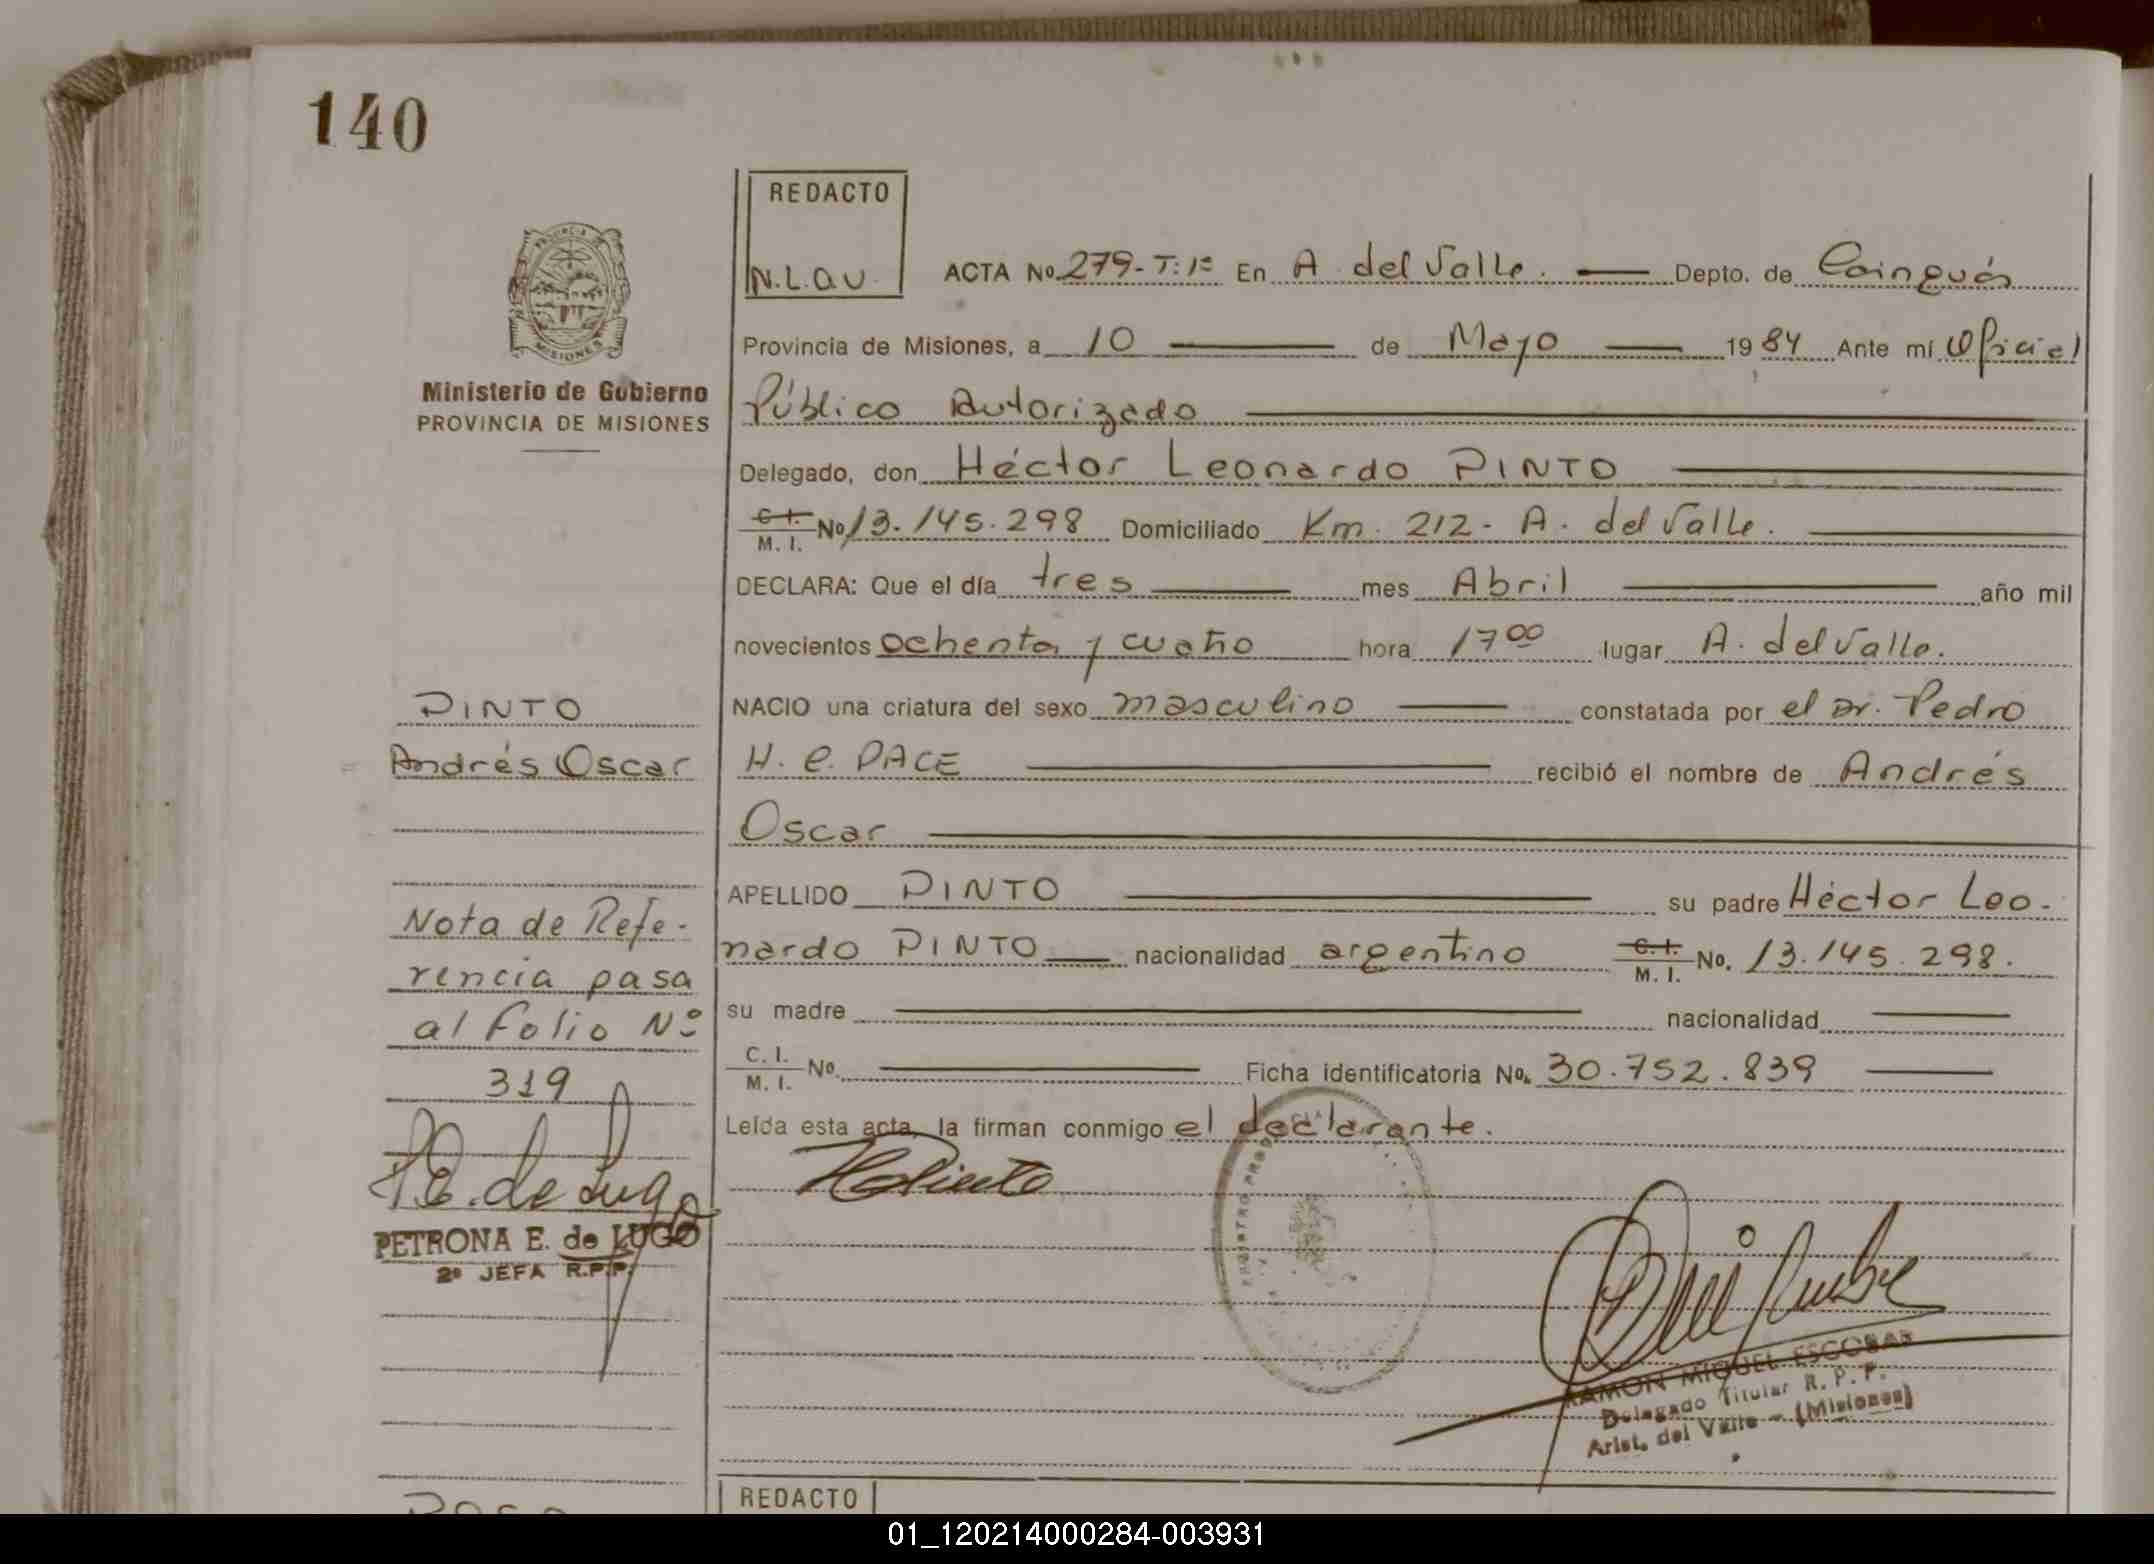 140
REDACTO
N.L.OV.
ACTA No. 279-T:1º En A. del Valle. Depto. de Cainguás
PROVINCIA DE MISIONES
Ministerio de Gobierno
PROVINCIA DE MISIONES
Provincia de Misiones, a 10 de Mayo 1984 Ante mí Oficial
Público Autorizado
Delegado, don Héctor Leonardo PINTO
C. I. M. I. No 13.145.298 Domiciliado Km. 212- A. del Valle.
DECLARA: Que el día tres mes Abril año mil
novecientos ochenta y cuatro hora 17 00 lugar A. del Valle.
NACIO una criatura del sexo masculino constatada por el Dr. Pedro
H. C. PACE recibió el nombre de Andrés
Oscar
APELLIDO PINTO su padre Héctor Leo-
nardo PINTO nacionalidad argentino C. I. M. I. No. 13.145.298.
su madre nacionalidad
C. I. M. I. No. Ficha identificatoria No. 30.752.839
Leída esta acta, la firman conmigo el declarante.
PINTO
Andrés Oscar
Nota de Refe-
rencia pasa
al Folio Nº
319
P.E. de Lugo
PETRONA E. de LUGO
2º JEFA R.P.P.
HPinto
RAMON MIGUEL ESCOBAR
Delegado Titular R. P. P.
Arist. del Valle - (Misiones)
REDACTO
01_120214000284-003931